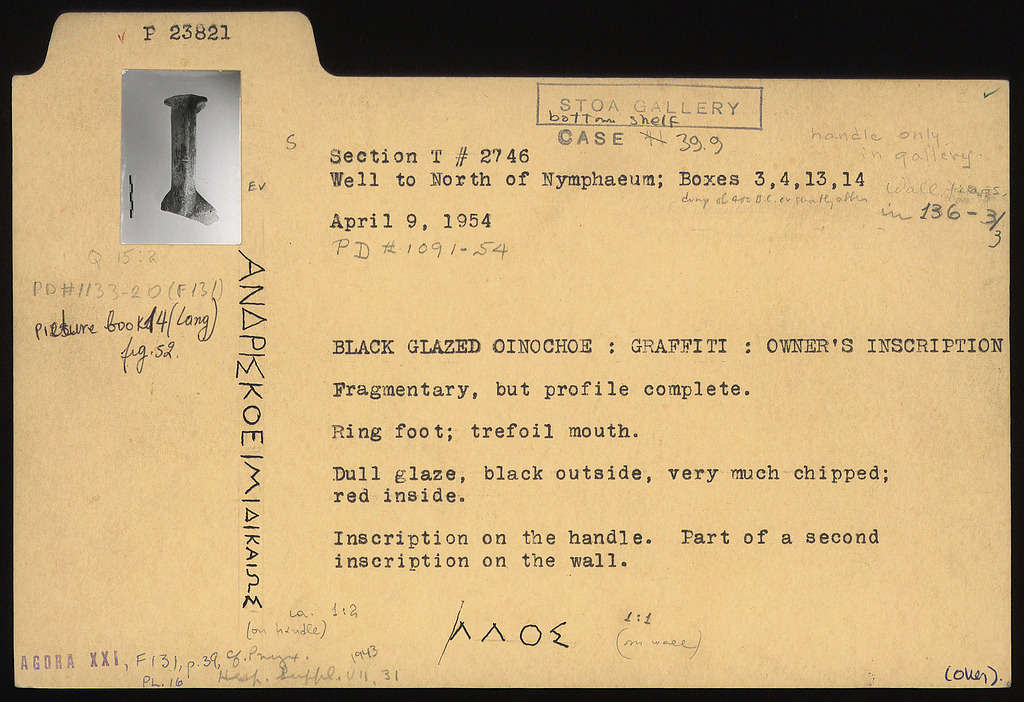 P 23821
STOA GALLERY
bottom shelf
CASE 39.9
handle only
in gallery.
wall frags.
in 136-3/3
S
Section T # 2746
EV
Well to North of Nymphaeum; Boxes 3,4,13,14
dump of 400 B.C. or shortly after
April 9, 1954
PD # 1091-54
Q 15:2
PD#1133-20 (F131)
picture book 14 (Lang)
fig. 52.
ΑΝΔΡΙΣΚΟΕΙΜΙΔΙΚΑΙΩΣ
BLACK GLAZED OINOCHOE : GRAFFITI : OWNER'S INSCRIPTION
Fragmentary, but profile complete.
Ring foot; trefoil mouth.
Dull glaze, black outside, very much chipped;
red inside.
Inscription on the handle. Part of a second
inscription on the wall.
ca. 1:2
(on handle)
ΛΛΟΣ
1:1
(on wall)
AGORA XXI, F131, p.39, cf. Pnyx. 1943
PL. 16 Hesp. Suppl. VII, 31
(over).